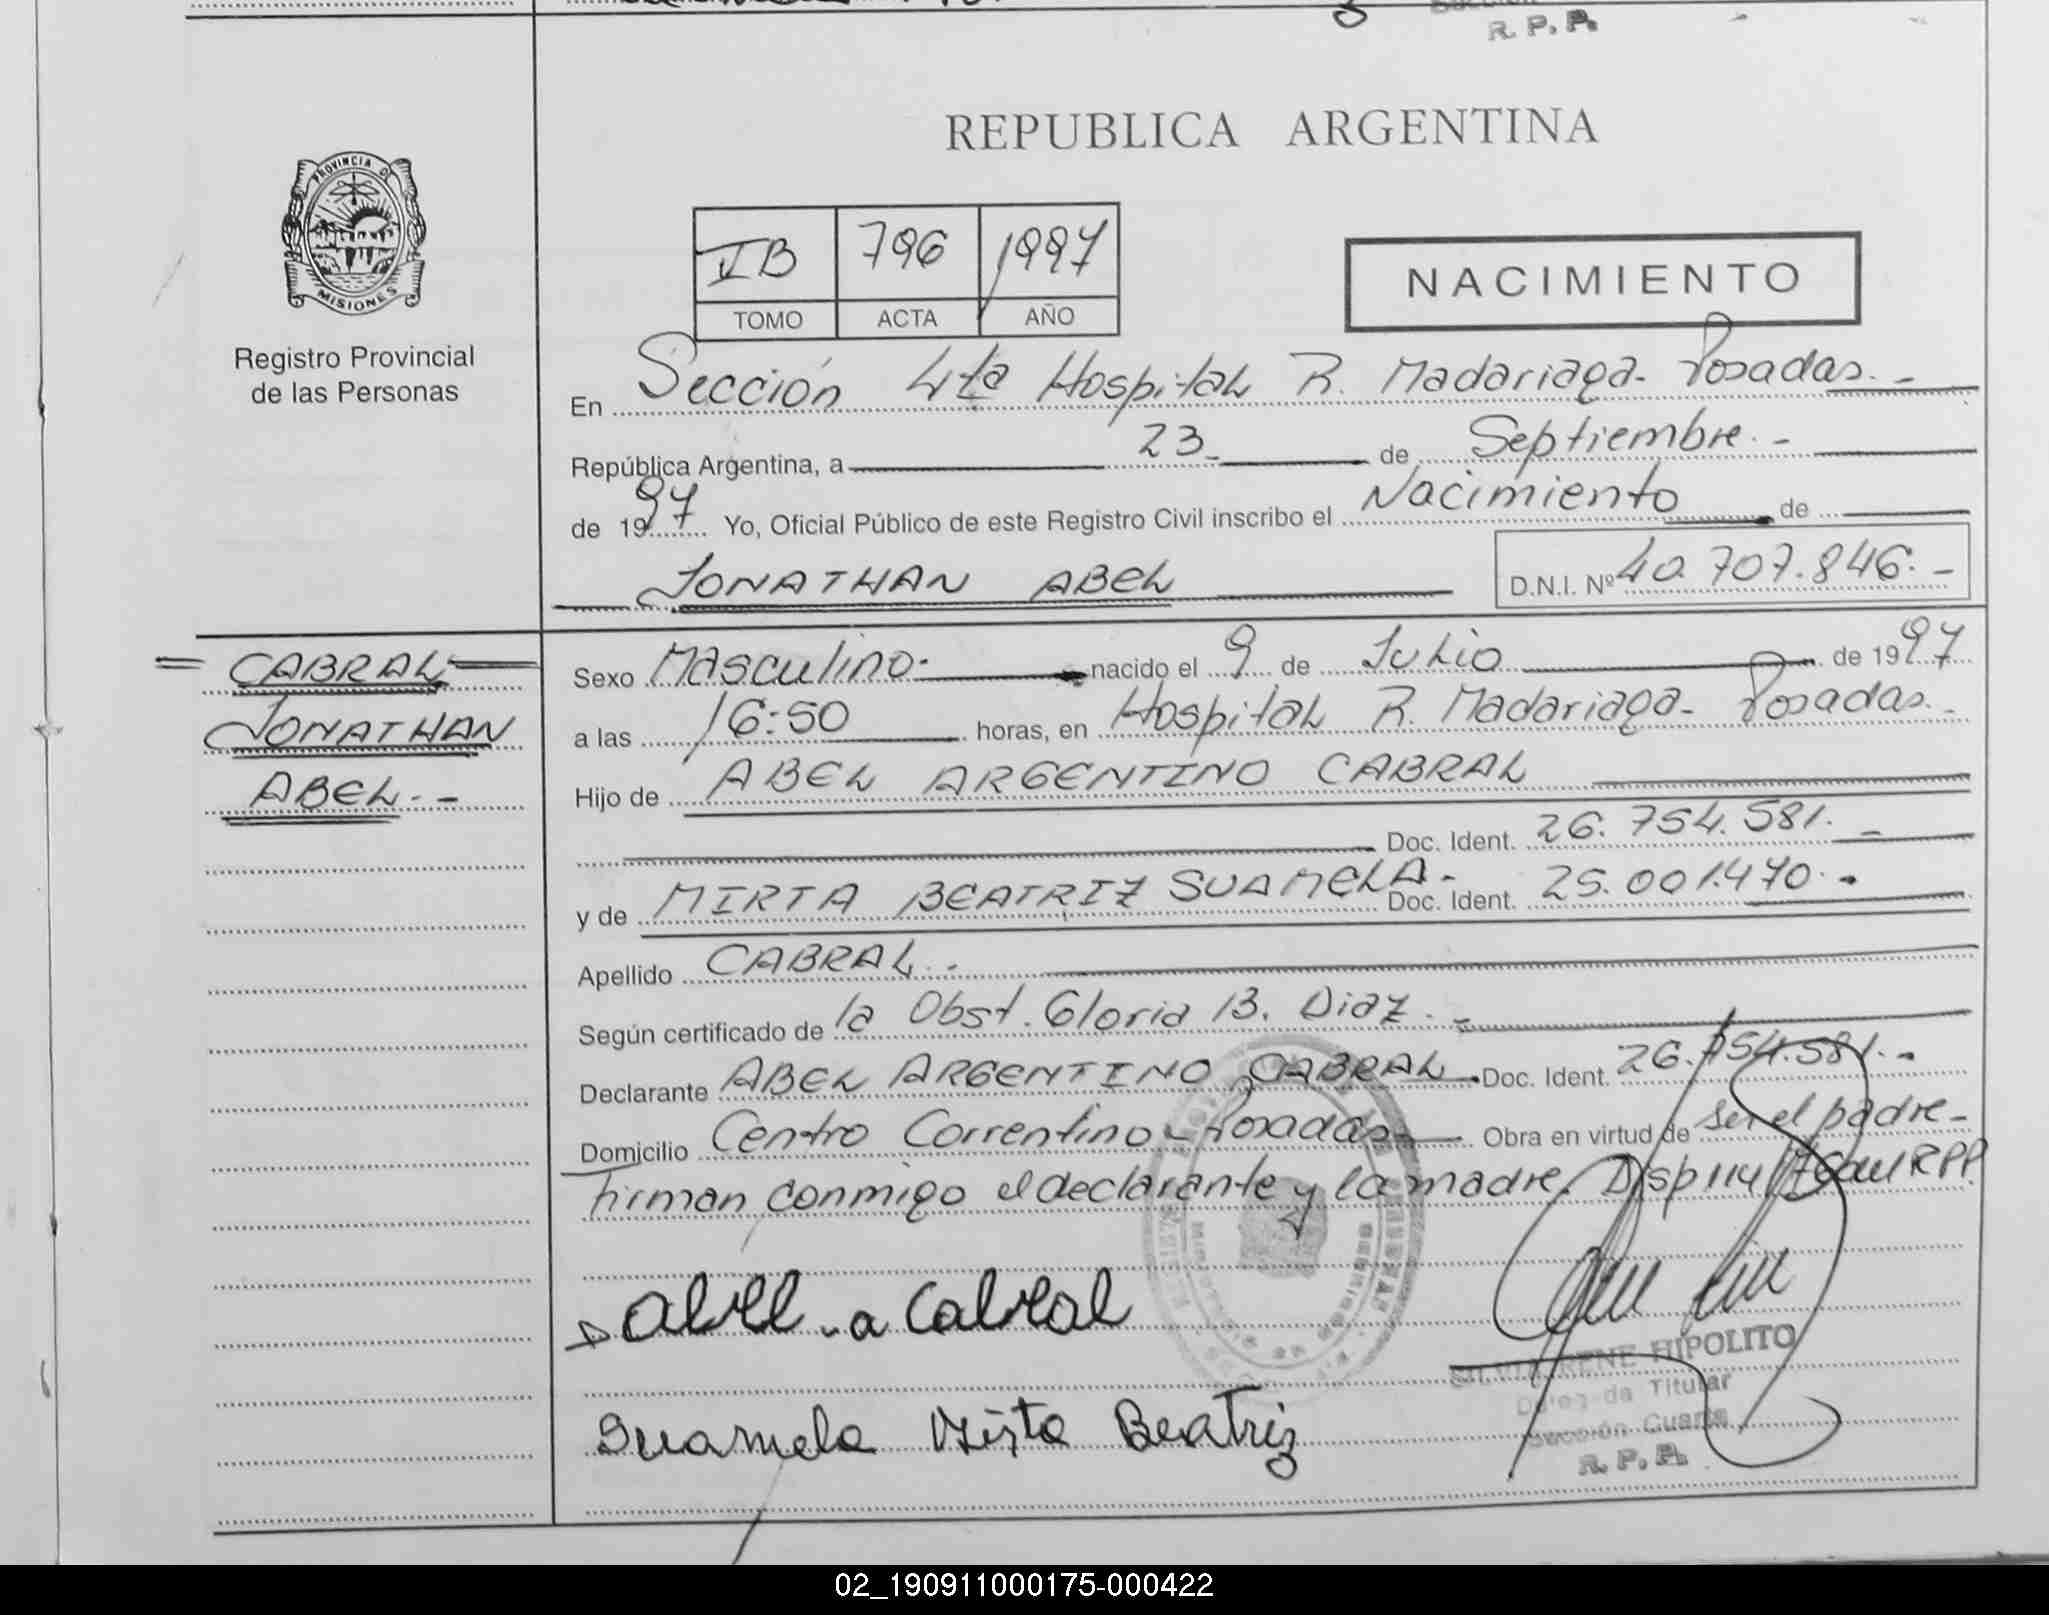 R. P. P.
REPUBLICA ARGENTINA
PROVINCIA DE
MISIONES
Registro Provincial
de las Personas
IIB 796 1997
TOMO ACTA AÑO
NACIMIENTO
En Sección 4ta Hospital R. Madariaga - Posadas. -
República Argentina, a 23 - de Septiembre. -
de 1997 Yo, Oficial Público de este Registro Civil inscribo el Nacimiento de
JONATHAN ABEL D.N.I. Nº 40.707.846. -
CABRAL
JONATHAN
ABEL. -
Sexo Masculino. - nacido el 9 de Julio de 1997
a las 16:50 horas, en Hospital R. Madariaga - Posadas. -
Hijo de ABEL ARGENTINO CABRAL
Doc. Ident. 26.754.581. -
y de MIRTA BEATRIZ SUAMELA. - Doc. Ident. 25.001.470. -
Apellido CABRAL. -
Según certificado de la Obst. Gloria B. Diaz. -
Declarante ABEL ARGENTINO CABRAL. Doc. Ident. 26.754.581. -
Domicilio Centro Correntino - Posadas - Obra en virtud de ser el padre -
firman conmigo el declarante y la madre. Disp 114 RPP.
abel - a Cabral
Suamela Mirta Beatriz
SILVIA IRENE HIPOLITO
Delegada Titular
Sección Cuarta
R. P. P.
02_190911000175-000422